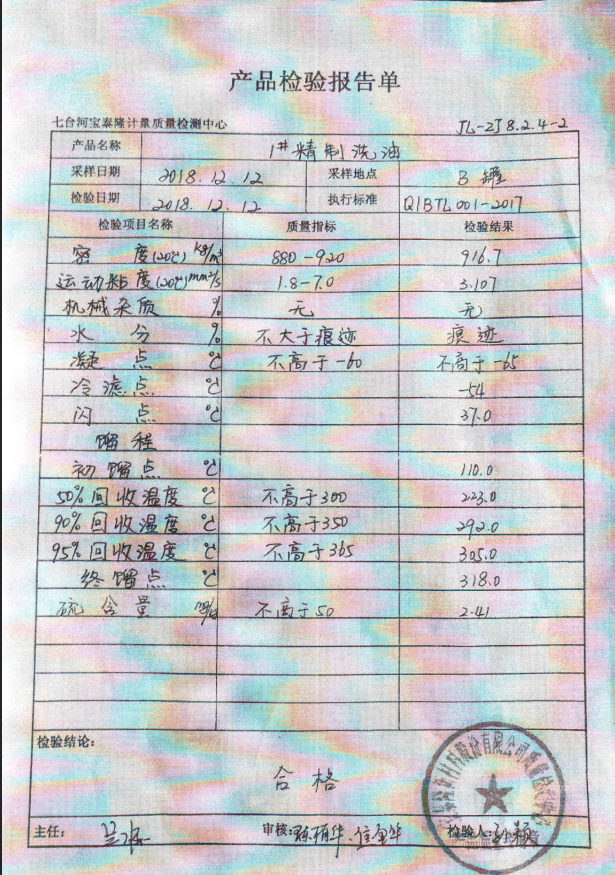 产品检验报告单
七台河宝泰隆计量质量检测中心 JL-ZJ8.2.4-2
产品名称 1#精制洗油
采样日期 2018.12.12 采样地点 B罐
检验日期 2018.12.12 执行标准 Q/BTL001-2017
检验项目名称 质量指标 检验结果
密度(20℃) kg/m³ 880-920 916.7
运动粘度(20℃)mm²/s 1.8-7.0 3.107
机械杂质 % 无 无
水分 % 不大于痕迹 痕迹
凝点 ℃ 不高于-60 不高于-65
冷滤点 ℃ -54
闪点 ℃ 37.0
馏程
初馏点 ℃ 110.0
50%回收温度 ℃ 不高于300 223.0
90%回收温度 ℃ 不高于350 292.0
95%回收温度 ℃ 不高于365 305.0
终馏点 ℃ 318.0
硫含量 不高于50 2.41
检验结论:
合格
主任: 审核: 检验人: